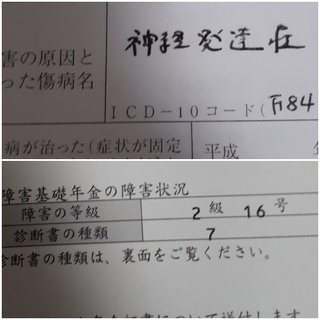 害の原因と
った傷病名
神経発達症
ICD-10コード(F84
病が治った(症状が固定
平成
障害基礎年金の障害状況
障害の等級
2級 16号
診断書の種類
7
診断書の種類は、裏面をご覧ください。